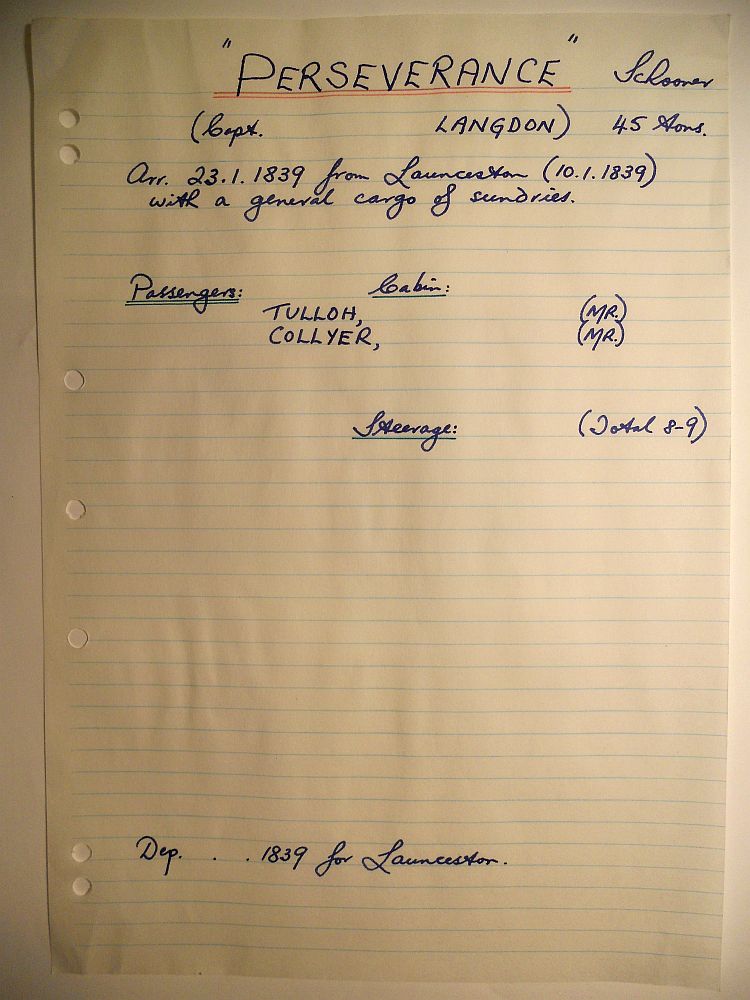 "PERSEVERANCE" Schooner
(Capt. LANGDON) 45 tons.
Arr. 23.1.1839 from Launceston (10.1.1839)
with a general cargo of sundries.
Passengers: Cabin:
TULLOH, (MR.)
COLLYER, (MR.)
Steerage: (Total 8-9)
Dep. . . 1839 for Launceston.